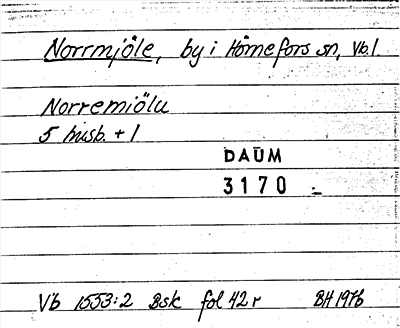 Norrmjöle, by i Hörnefors sn, Vb.l.
Norremiölu
5 husb. + 1
DAUM
3170 :_
Vb 1553:2 Bsk fol 42 r BH 1976